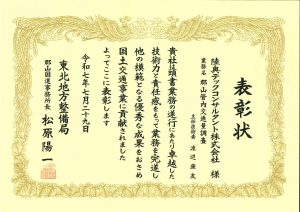 表彰状
陸奥テックコンサルタント株式会社 様
業務名 郡山管内交通量調査
主任技術者 渡辺 康友
貴社は頭書業務の遂行にあたり卓越した
技術力と責任感をもって業務を完遂し
他の模範となる優秀な成果をおさめ
国土交通事業に貢献されました
よってここに表彰します
令和七年七月二十九日
東北地方整備局
郡山国道事務所長 松原 陽一